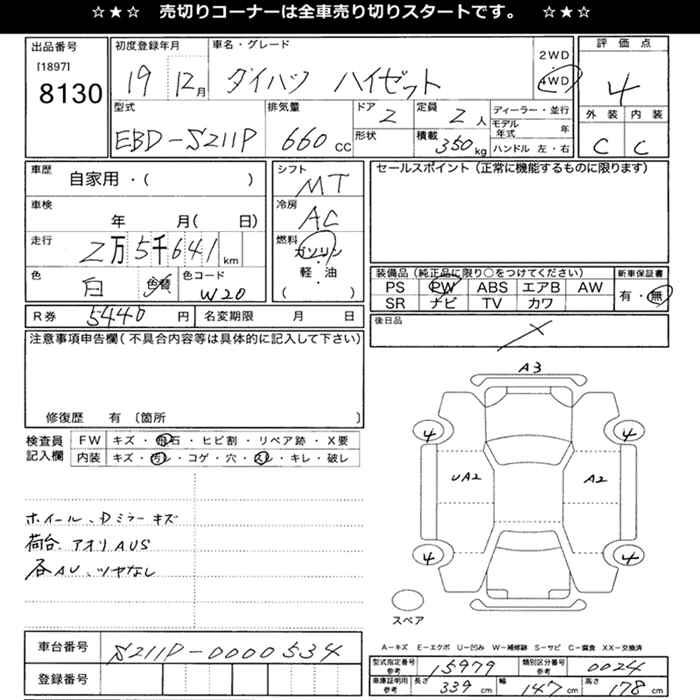 ☆★☆ 売切りコーナーは全車売り切りスタートです。 ☆★☆
出品番号
[1897]
8130
初度登録年月
19 12月
車名・グレード
ダイハツ ハイゼット
2WD
4WD
評価点
4
外装 内装
C C
型式
EBD-S211P
排気量
660 CC
ドア 2
形状
定員 2 人
積載 350 kg
ディーラー・並行
モデル年式 年
ハンドル 左・右
車歴
自家用・( )
車検
年 月( 日)
走行
2万5千641 km
色
白
色替
色コード
W20
シフト
MT
冷房
AC
燃料
ガソリン
・
軽油
( )
セールスポイント(正常に機能するものに限ります)
装備品(純正品に限り○をつけてください)
PS PW ABS エアB AW
SR ナビ TV カワ
新車保証書
有・無
R券 5440 円
名変期限 月 日
後日品
注意事項申告欄(不具合内容等は具体的に記入して下さい)
修復歴 有 〔箇所 〕
検査員
記入欄
FW キズ・飛石・ヒビ割・リペア跡・X要
内装 キズ・汚レ・コゲ・穴・スレ・キレ・破レ
ホイール、Dミラーキズ
荷台、アオリAUS
各AU、ツヤなし
A3
4 4
UA2 A2
4 4
スペア
A-キズ E-エクボ U-凹み W-補修跡 S-サビ C-腐食 XX-交換済
車台番号 S211P-0000534
登録番号
型式指定番号
参考
15979
類別区分番号
参考
0024
車庫証明用
参考
長さ 339 cm
幅 147 cm
高さ 178 cm